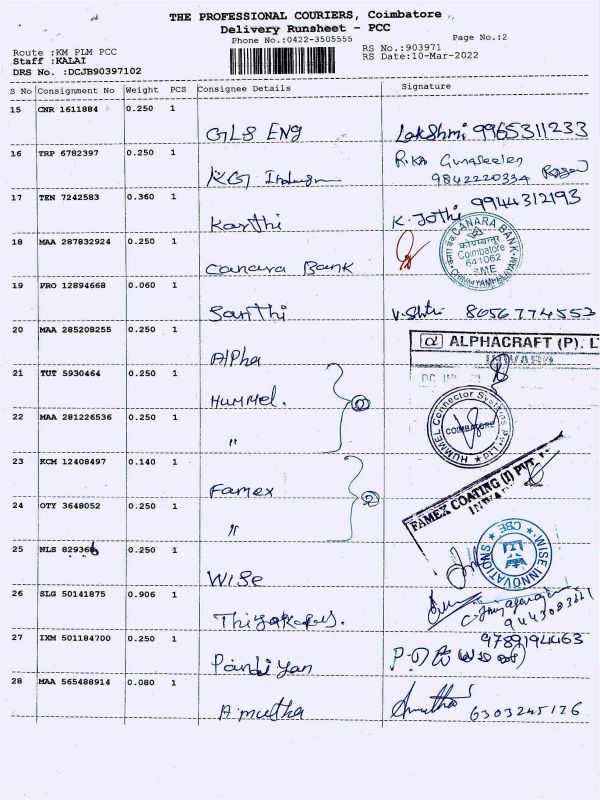 THE PROFESSIONAL COURIERS, Coimbatore
Delivery Runsheet - PCC
Phone No.:0422-3505555
Page No.:2
Route :KM PLM PCC
Staff :KALAI
DRS No. :DCJB90397102
RS No.:903971
RS Date:10-Mar-2022
S No Consignment No Weight PCS Consignee Details Signature
15 CNR 1611884 0.250 1
GLS ENG Lakshmi 9965311233
16 TRP 6782397 0.250 1
KG
9842220334
17 TEN 7242583 0.360 1
Karthi K. Jothi 9944312193
18 MAA 287832924 0.250 1
Canara Bank
CANARA BANK
Coimbatore
641062
SME
19 PRO 12894668 0.060 1
Santhi 8056774552
20 MAA 285208255 0.250 1
Alpha
α ALPHACRAFT (P). LT
INWARD
21 TUT 5930464 0.250 1
Hummel. 2
HUMMEL Connector Systems Pvt Ltd
COIMBATORE
22 MAA 281226536 0.250 1
"
23 KCM 12408497 0.140 1
Famex 2
FAMEX COATING (I) PVT.
INWARD
24 OTY 3648052 0.250 1
"
25 NLS 829366 0.250 1
Wise
WISE INNOVATIONS
CBE
26 SLG 50141875 0.906 1
27 IXM 501184700 0.250 1
Pandiyan
9789194463
28 MAA 565488914 0.080 1
Amutha Amutha 6303245126